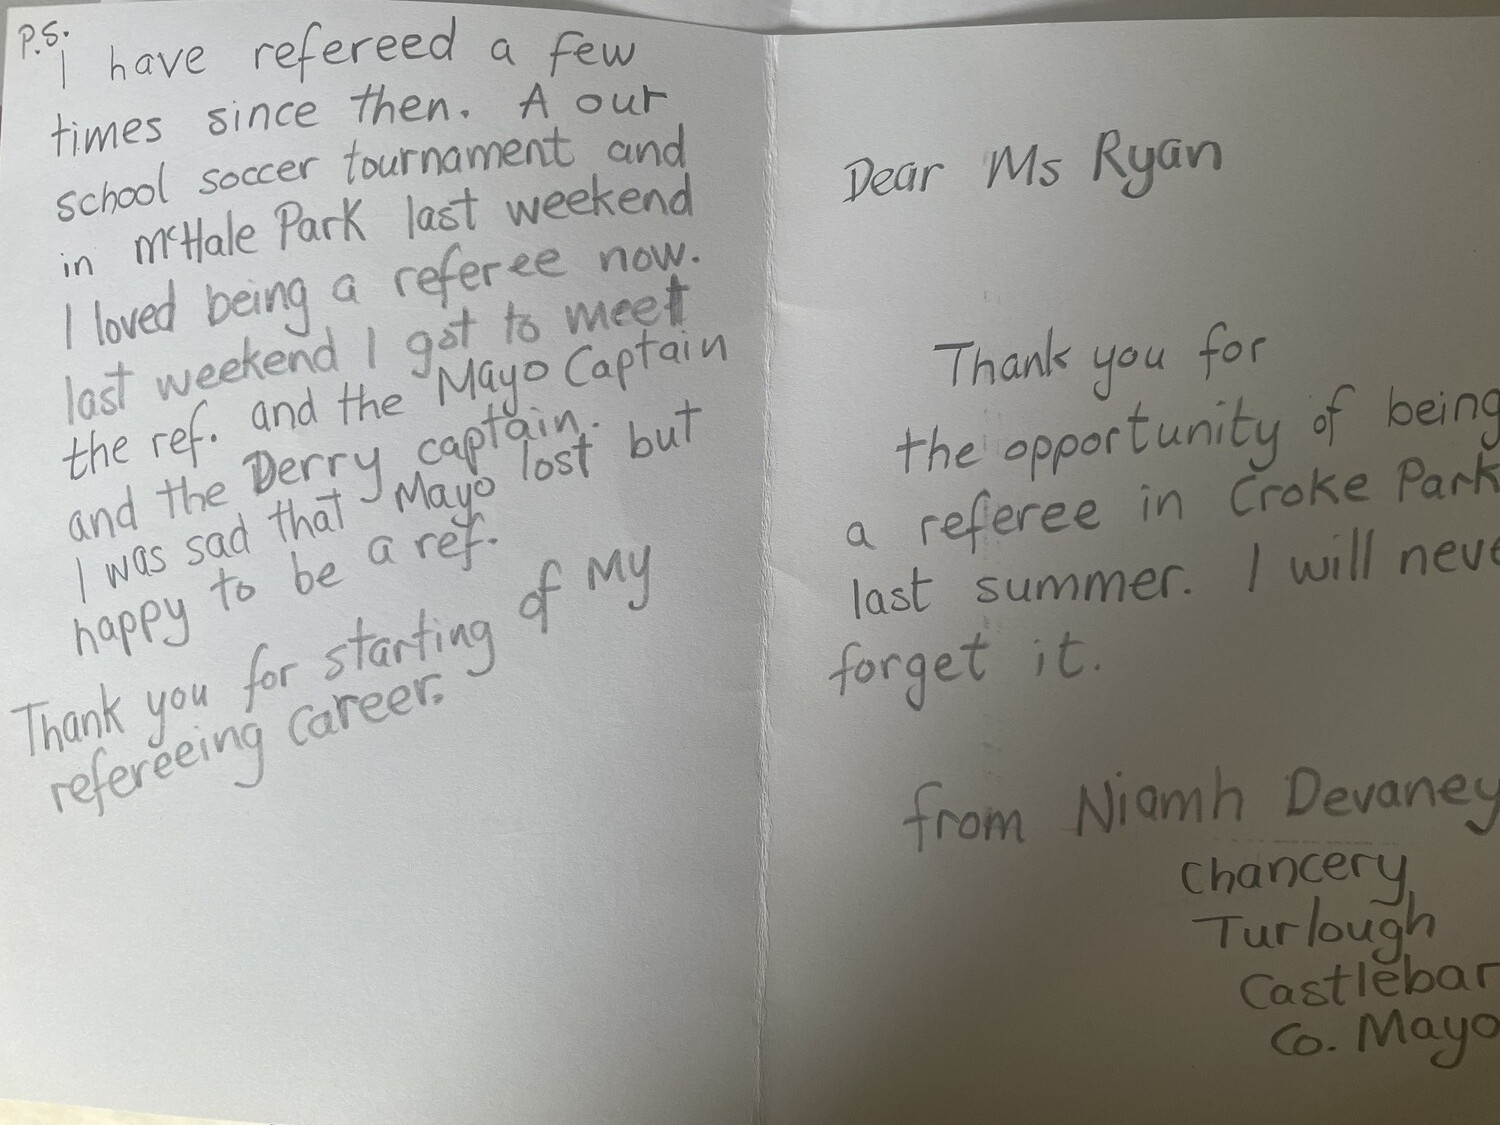 Dear Ms Ryan
Thank you for
the opportunity of being
a referee in Croke Park
last summer. I will neve
forget it.
from Niamh Devaney
Chancery
Turlough
Castlebar
Co. Mayo
P.S.
I have refereed a few
times since then. A our
school soccer tournament and
in McHale Park last weekend
I loved being a referee now.
last weekend I got to meet
the ref. and the Mayo Captain
and the Derry captain.
I was sad that Mayo lost but
happy to be a ref.
Thank you for starting of my
refereeing career.